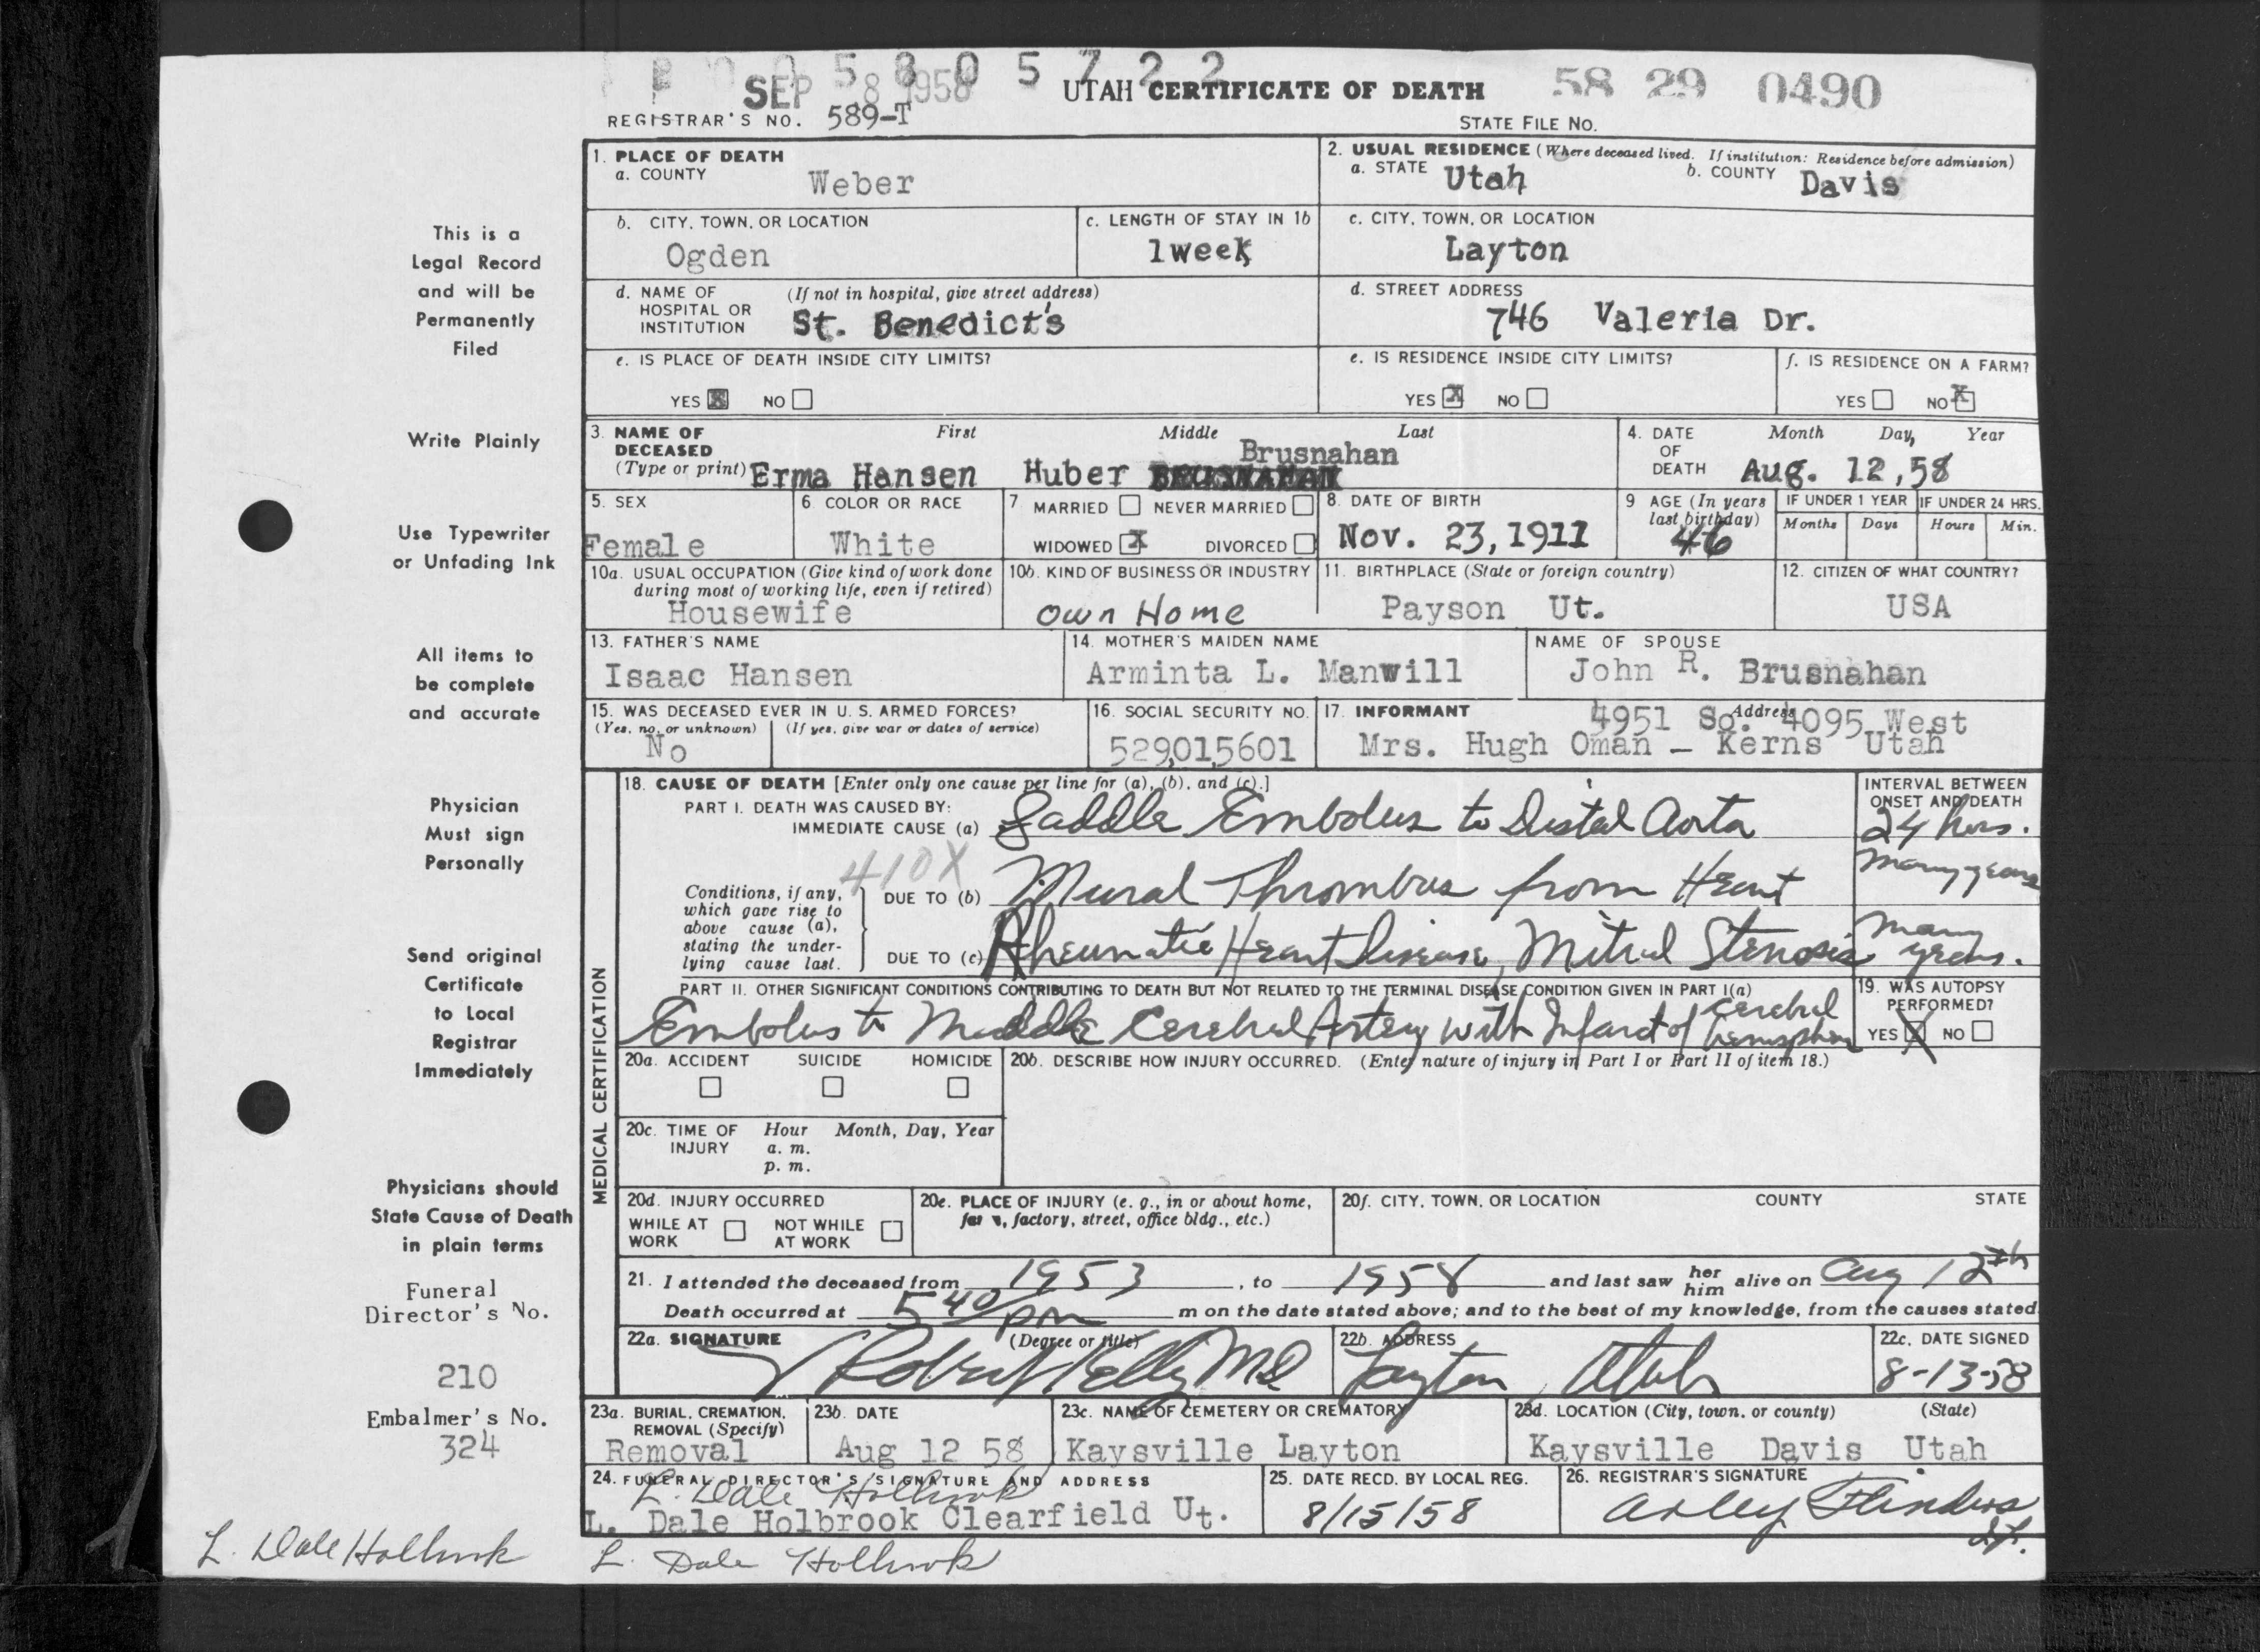 SEP 8 1958
5 8 0 5 7 2 2
UTAH CERTIFICATE OF DEATH
58 29 0490
REGISTRAR'S NO. 589-T
STATE FILE NO.
1. PLACE OF DEATH
a. COUNTY Weber
2. USUAL RESIDENCE (Where deceased lived. If institution: Residence before admission)
a. STATE Utah b. COUNTY Davis
b. CITY, TOWN, OR LOCATION Ogden
c. LENGTH OF STAY IN 1b 1week
c. CITY, TOWN, OR LOCATION Layton
d. NAME OF HOSPITAL OR INSTITUTION (If not in hospital, give street address) St. Benedict's
d. STREET ADDRESS 746 Valeria Dr.
e. IS PLACE OF DEATH INSIDE CITY LIMITS?
YES X NO
e. IS RESIDENCE INSIDE CITY LIMITS?
YES X NO
f. IS RESIDENCE ON A FARM?
YES NO X
3. NAME OF DECEASED (Type or print) First Middle Last
Brusnahan
Erma Hansen Huber BRUSNAHAN
4. DATE OF DEATH Month Day, Year
Aug. 12, 58
5. SEX Female
6. COLOR OR RACE White
7 MARRIED NEVER MARRIED
WIDOWED X DIVORCED
8. DATE OF BIRTH Nov. 23, 1911
9 AGE (In years last birthday) 46
IF UNDER 1 YEAR Months Days
IF UNDER 24 HRS. Hours Min.
10a. USUAL OCCUPATION (Give kind of work done during most of working life, even if retired) Housewife
10b. KIND OF BUSINESS OR INDUSTRY own Home
11. BIRTHPLACE (State or foreign country) Payson Ut.
12. CITIZEN OF WHAT COUNTRY? USA
13. FATHER'S NAME Isaac Hansen
14. MOTHER'S MAIDEN NAME Arminta L. Manwill
NAME OF SPOUSE John R. Brusnahan
15. WAS DECEASED EVER IN U. S. ARMED FORCES?
(Yes, no, or unknown) (If yes, give war or dates of service)
No
16. SOCIAL SECURITY NO. 529015601
17. INFORMANT Address
4951 So. 4095 West
Mrs. Hugh Oman - Kerns Utah
MEDICAL CERTIFICATION
18. CAUSE OF DEATH [Enter only one cause per line for (a), (b), and (c).]
INTERVAL BETWEEN ONSET AND DEATH
PART I. DEATH WAS CAUSED BY:
IMMEDIATE CAUSE (a) Saddle Embolus to Distal Aorta 24 hrs.
410X
Conditions, if any, which gave rise to above cause (a), stating the underlying cause last.
DUE TO (b) Mural Thrombus from Heart Many years
DUE TO (c) Rheumatic Heart Disease, Mitral Stenosis Many years.
PART II. OTHER SIGNIFICANT CONDITIONS CONTRIBUTING TO DEATH BUT NOT RELATED TO THE TERMINAL DISEASE CONDITION GIVEN IN PART I(a)
Embolus to Middle Cerebral Artery with Infarct of Cerebral hemisphere
19. WAS AUTOPSY PERFORMED?
YES X NO
20a. ACCIDENT SUICIDE HOMICIDE
20b. DESCRIBE HOW INJURY OCCURRED. (Enter nature of injury in Part I or Part II of item 18.)
20c. TIME OF INJURY Hour Month, Day, Year
a. m.
p. m.
20d. INJURY OCCURRED
WHILE AT WORK NOT WHILE AT WORK
20e. PLACE OF INJURY (e. g., in or about home, farm, factory, street, office bldg., etc.)
20f. CITY, TOWN, OR LOCATION COUNTY STATE
21. I attended the deceased from 1953, to 1958 and last saw her him alive on Aug 12th
Death occurred at 5 40 pm m on the date stated above; and to the best of my knowledge, from the causes stated
22a. SIGNATURE (Degree or title) Robert Kelly MD
22b. ADDRESS Layton, Utah
22c. DATE SIGNED 8-13-58
23a. BURIAL, CREMATION, REMOVAL (Specify) Removal
23b. DATE Aug 12 58
23c. NAME OF CEMETERY OR CREMATORY Kaysville Layton
23d. LOCATION (City, town, or county) (State) Kaysville Davis Utah
24. FUNERAL DIRECTOR'S SIGNATURE AND ADDRESS
L. Dale Holbrook
L. Dale Holbrook Clearfield Ut.
25. DATE RECD. BY LOCAL REG. 8/15/58
26. REGISTRAR'S SIGNATURE Arley Flinders
L. Dale Holbrook
L. Dale Holbrook
This is a
Legal Record
and will be
Permanently
Filed
Write Plainly
Use Typewriter
or Unfading Ink
All items to
be complete
and accurate
Physician
Must sign
Personally
Send original
Certificate
to Local
Registrar
Immediately
Physicians should
State Cause of Death
in plain terms
Funeral
Director's No.
210
Embalmer's No.
324